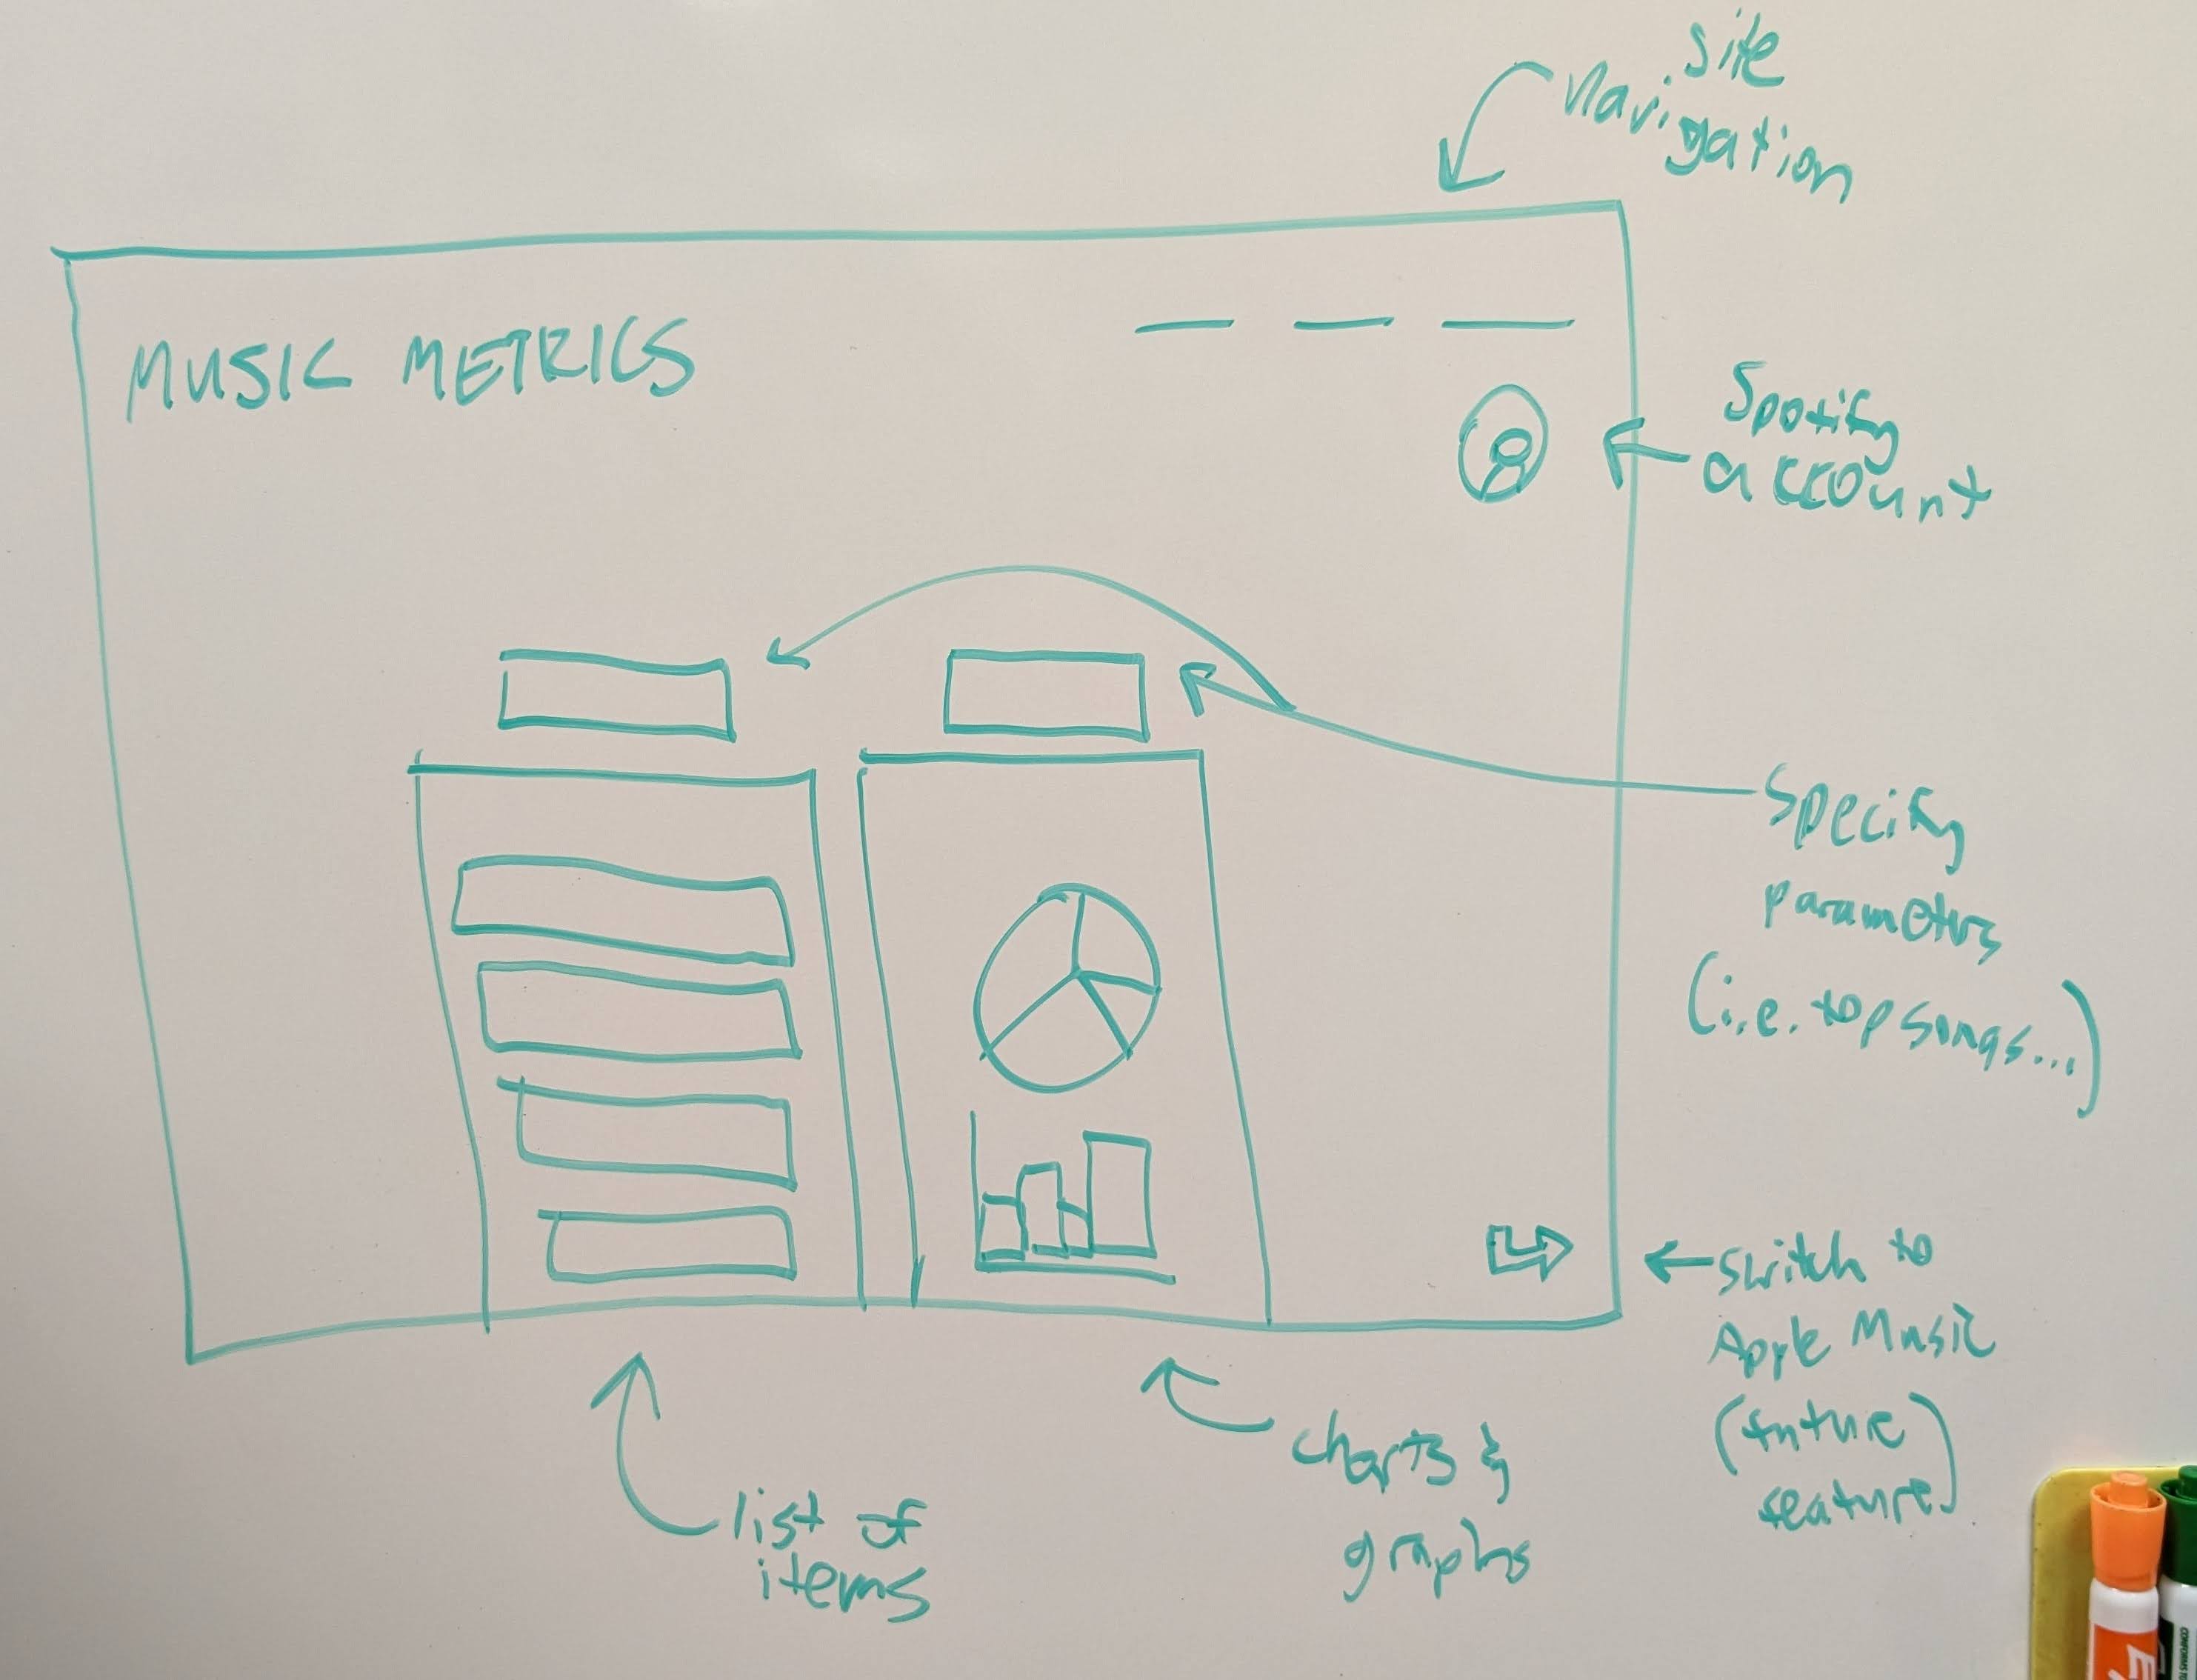 Site
Navigation
MUSIC METRICS
Spotify
account
Specify
parameters
(i.e. top songs...)
switch to
Apple Music
(future
feature)
charts &
graphs
list of
items